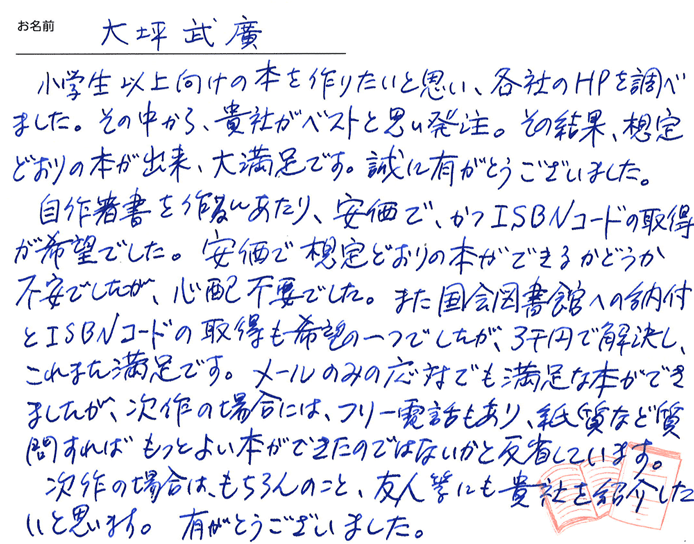 お名前 大坪武廣
小学生以上向けの本を作りたいと思い、各社のHPを調べ
ました。その中から、貴社がベストと思い発注。その結果、想定
どおりの本が出来、大満足です。誠に有がとうございました。
自作著書を作るにあたり、安価で、かつISBNコードの取得
が希望でした。安価で想定どおりの本ができるかどうか
不安でしたが、心配不要でした。また国会図書館への納付
とISBNコードの取得も希望の一つでしたが、3千円で解決し、
これまた満足です。メールのみの応対でも満足な本ができ
ましたが、次作の場合には、フリー電話もあり、紙質など質
問すればもっとよい本ができたのではないかと反省しています。
次作の場合は、もちろんのこと、友人等にも貴社を紹介した
いと思います。有がとうございました。